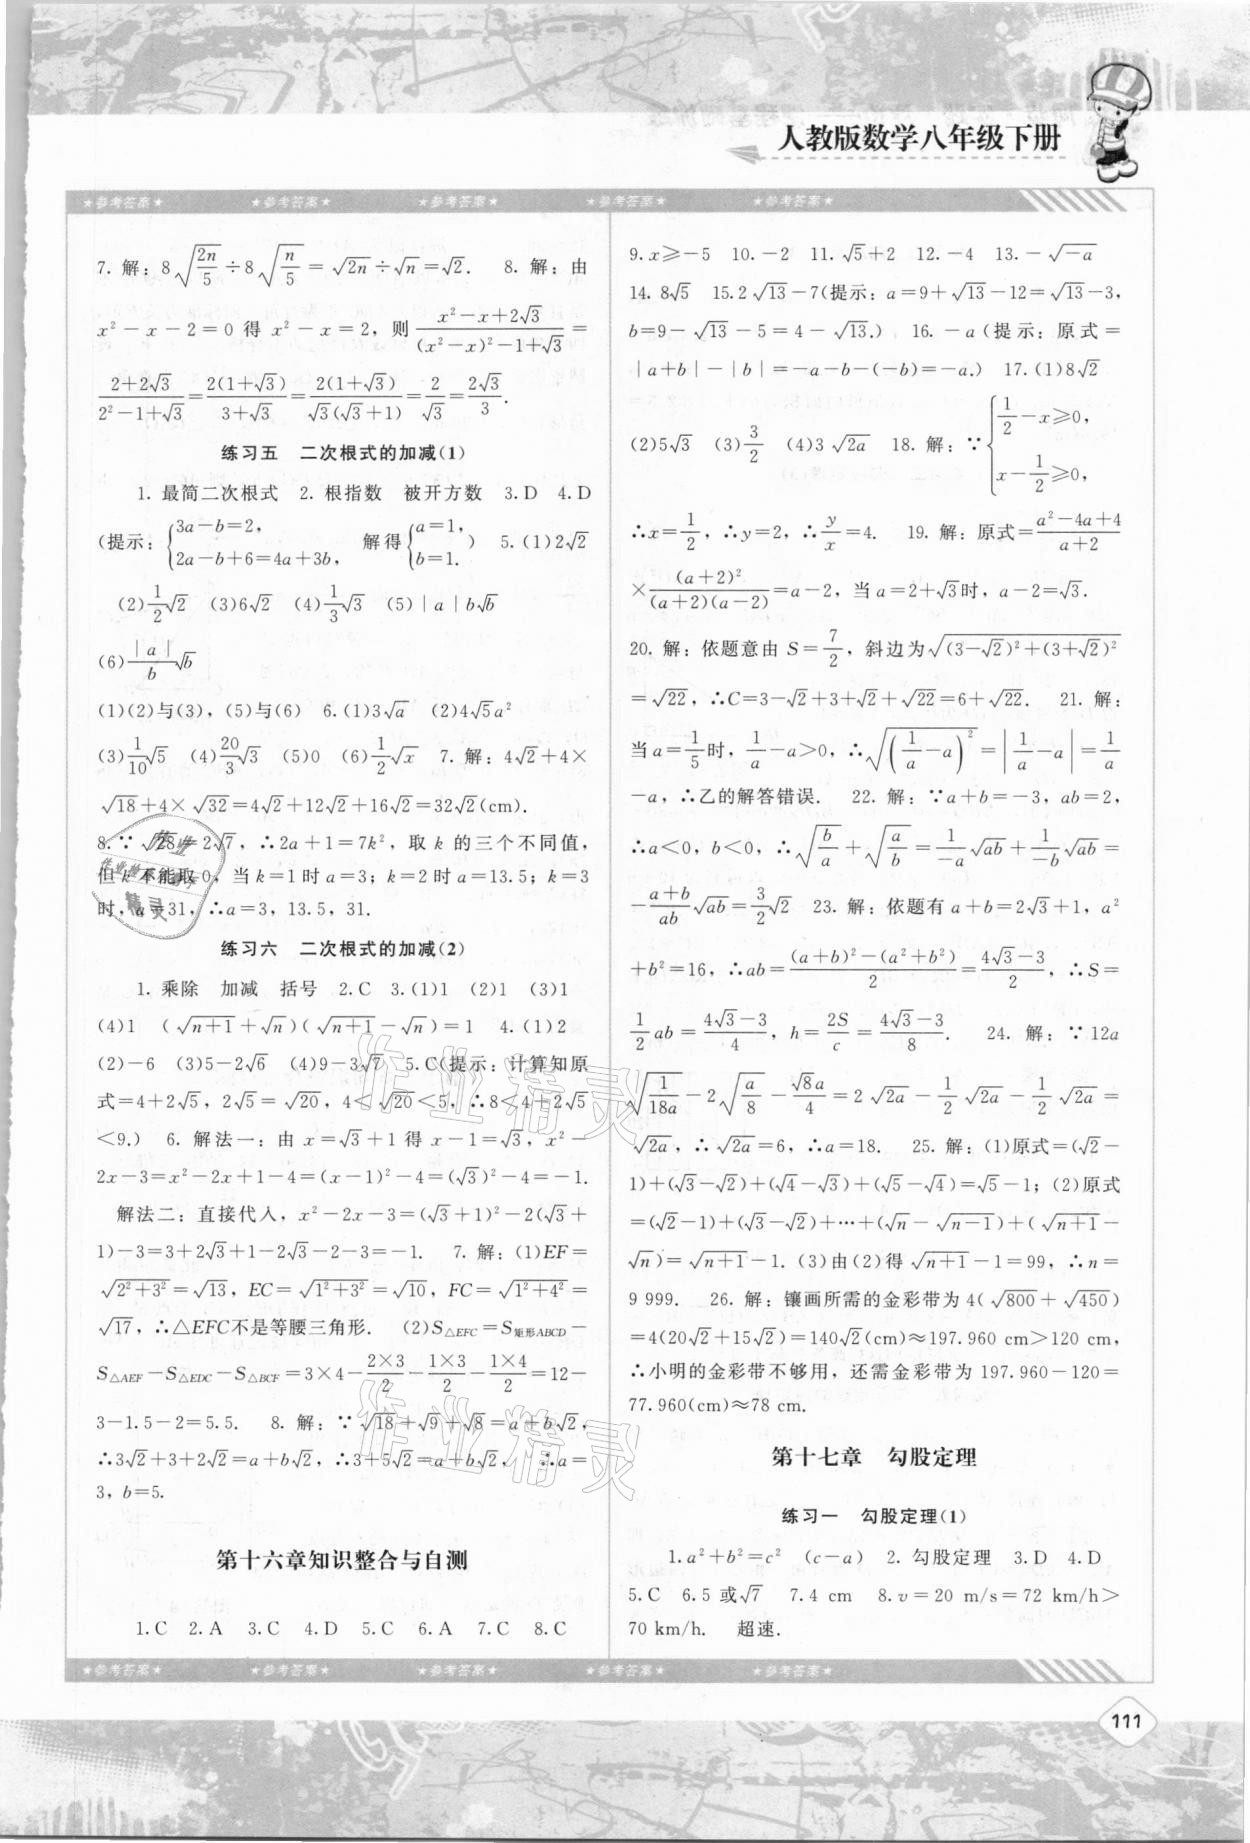 人教版数学八年级下册
★参考答案★ ★参考答案★ ★参考答案★ ★参考答案★ ★参考答案★
7. 解:8√(2n/5)÷8√(n/5)=√2n÷√n=√2. 8. 解:由
x²-x-2=0 得 x²-x=2,则(x²-x+2√3)/((x²-x)²-1+√3)=
(2+2√3)/(2²-1+√3)=2(1+√3)/(3+√3)=2(1+√3)/(√3(√3+1))=2/√3=2√3/3.
练习五 二次根式的加减(1)
1. 最简二次根式 2. 根指数 被开方数 3. D 4. D
(提示:{3a-b=2, 2a-b+6=4a+3b, 解得{a=1, b=1.) 5. (1)2√2
(2)1/2√2 (3)6√2 (4)1/3√3 (5)|a|b√b
(6)|a|/b√b
(1)(2)与(3),(5)与(6) 6. (1)3√a (2)4√5a²
(3)1/10√5 (4)20/3√3 (5)0 (6)1/2√x 7. 解:4√2+4×
√18+4×√32=4√2+12√2+16√2=32√2(cm).
8. ∵√28=2√7,∴2a+1=7k²,取 k 的三个不同值,
但 k 不能取 0,当 k=1 时 a=3;k=2 时 a=13.5;k=3
时,a=31,∴a=3,13.5,31.
练习六 二次根式的加减(2)
1. 乘除 加减 括号 2. C 3. (1)1 (2)1 (3)1
(4)1 (√(n+1)+√n)(√(n+1)-√n)=1 4. (1)2
(2)-6 (3)5-2√6 (4)9-3√7 5. C(提示:计算知原
式=4+2√5,2√5=√20,4<√20<5,∴8<4+2√5
<9.) 6. 解法一:由 x=√3+1 得 x-1=√3,x²-
2x-3=x²-2x+1-4=(x-1)²-4=(√3)²-4=-1.
解法二:直接代入,x²-2x-3=(√3+1)²-2(√3+
1)-3=3+2√3+1-2√3-2-3=-1. 7. 解:(1)EF=
√(2²+3²)=√13,EC=√(1²+3²)=√10,FC=√(1²+4²)=
√17,∴△EFC不是等腰三角形. (2)S△EFC=S矩形ABCD-
S△AEF-S△EDC-S△BCF=3×4-(2×3)/2-(1×3)/2-(1×4)/2=12-
3-1.5-2=5.5. 8. 解:∵√18+√9+√8=a+b√2,
∴3√2+3+2√2=a+b√2,∴3+5√2=a+b√2, ∴a=
3,b=5.
第十六章知识整合与自测
1. C 2. A 3. C 4. D 5. C 6. A 7. C 8. C
9. x≥-5 10. -2 11. √5+2 12. -4 13. -√(-a)
14. 8√5 15. 2√13-7(提示:a=9+√13-12=√13-3,
b=9-√13-5=4-√13.) 16. -a(提示:原式=
|a+b|-|b|=-a-b-(-b)=-a.) 17. (1)8√2
(2)5√3 (3)3/2 (4)3√2a 18. 解:∵{1/2-x≥0, x-1/2≥0,
∴x=1/2,∴y=2,∴y/x=4. 19. 解:原式=(a²-4a+4)/(a+2)
×(a+2)²/((a+2)(a-2))=a-2,当 a=2+√3时,a-2=√3.
20. 解:依题意由 S=7/2,斜边为√((3-√2)²+(3+√2)²)
=√22,∴C=3-√2+3+√2+√22=6+√22. 21. 解:
当 a=1/5时,1/a-a>0,∴√((1/a-a)²)=|1/a-a|=1/a
-a,∴乙的解答错误. 22. 解:∵a+b=-3,ab=2,
∴a<0,b<0,∴√(b/a)+√(a/b)=1/(-a)√ab+1/(-b)√ab=
-(a+b)/ab√ab=3/2√2 23. 解:依题有 a+b=2√3+1,a²
+b²=16,∴ab=((a+b)²-(a²+b²))/2=(4√3-3)/2,∴S=
1/2ab=(4√3-3)/4,h=2S/c=(4√3-3)/8. 24. 解:∵12a
√(1/18a)-2√(a/8)-√8a/4=2√2a-1/2√2a-1/2√2a=
√2a,∴√2a=6,∴a=18. 25. 解:(1)原式=(√2-
1)+(√3-√2)+(√4-√3)+(√5-√4)=√5-1;(2)原式
=(√2-1)+(√3-√2)+…+(√n-√(n-1))+(√(n+1)-
√n)=√(n+1)-1. (3)由(2)得√(n+1)-1=99,∴n=
9 999. 26. 解:镶画所需的金彩带为 4(√800+√450)
=4(20√2+15√2)=140√2(cm)≈197.960 cm>120 cm,
∴小明的金彩带不够用,还需金彩带为 197.960-120=
77.960(cm)≈78 cm.
第十七章 勾股定理
练习一 勾股定理(1)
1. a²+b²=c² (c-a) 2. 勾股定理 3. D 4. D
5. C 6. 5 或√7 7. 4 cm 8. v=20 m/s=72 km/h>
70 km/h. 超速.
★参考答案★ ★参考答案★ ★参考答案★ ★参考答案★ ★参考答案★
111
作业精灵
作业精灵